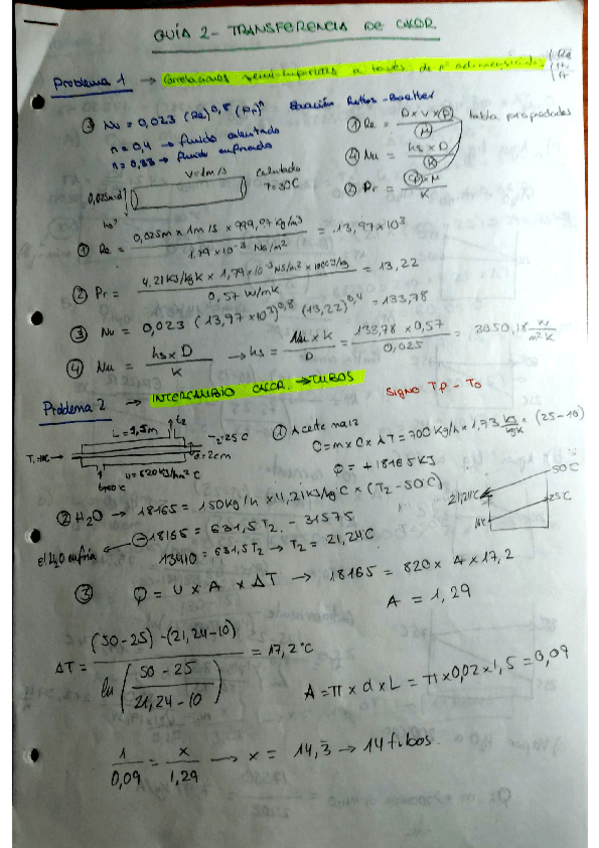 GUÍA 2 - TRANSFERENCIA DE CALOR.
Problema 1 → Correlaciones semi-empíricas a través de nº adimensionales.
③ Nu = 0,023 (Re)^0,8 (Pr)^n Ecuación
n = 0,4 → fluido calentado
n = 0,33 → fluido enfriado
① Re = (D x V x ρ) / μ tabla propiedades
④ Nu = (hs x D) / K
② Pr = (Cp x μ) / K
V = 1m/s
0,025m
calentado
hs?
① Re = (0,025m x 1m/s x 999,97 kg/m³) / (1,79 x 10⁻³ Ns/m²) = 13,97 x 10³
② Pr = (4,21 KJ/kgK x 1,79 x 10⁻³ NS/m² x 1000 J/kg) / (0,57 W/mK) = 13,22
③ Nu = 0,023 (13,97 x 10³)^0,8 (13,22)^0,4 = 133,78
④ Nu = (hs x D) / K → hs = (Nu x K) / D = (133,78 x 0,57) / 0,025 = 3050,18
Problema 2 → INTERCAMBIO CALOR → TUBOS
Signo Tf - To
L = 1,5m t₂
T₂ = 25ºC
d = 2cm
① Aceite maíz
Q = m x C x ΔT = 700 Kg/h x 1,73 KJ/kgK x (25 - 10)
Q = + 18165 KJ
② H₂O → 18165 = 150 kg/h x 4,21 KJ/kgC x (T₂ - 50C)
− 18165 = 631,5 T₂ - 31575
el H₂O enfría
13410 = 631,5 T₂ → T₂ = 21,24C
50C
21,24C
25C
③ Q = U x A x ΔT → 18165 = 820 x A x 17,2
A = 1,29
ΔT = ((50 - 25) - (21,24 - 10)) / ln((50 - 25) / (21,24 - 10)) = 17,2ºC
A = π x d x L = π x 0,02 x 1,5 = 0,09
1/0,09 = x/1,29 → x = 14,3 → 14 tubos.